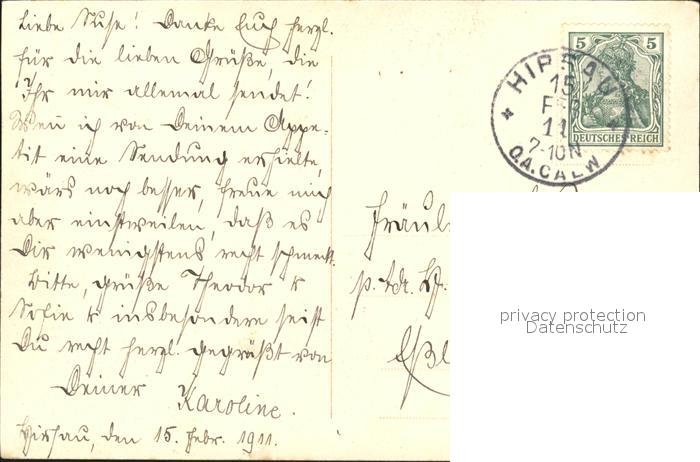 Liebe Suse! Danke Euch herzl.
für die lieben Grüße, die
Ihr mir allemal sendet!
Wenn ich von Deinem Appe-
tit eine Sendung erhielte,
wärs noch besser, freue mich
aber einstweilen, daß es
Dir wenigstens recht schmeckt.
Bitte, grüße Theodor &
Sofie & insbesondere seist
Du recht herzl. gegrüßt von
Deiner Karoline.
Hirsau, den 15. Febr. 1911.
5 5
DEUTSCHES REICH
HIRSAU
15
FEB
11
7-10N
O.A.CALW
Fräul
p. Adr.
Eßl
privacy protection
Datenschutz